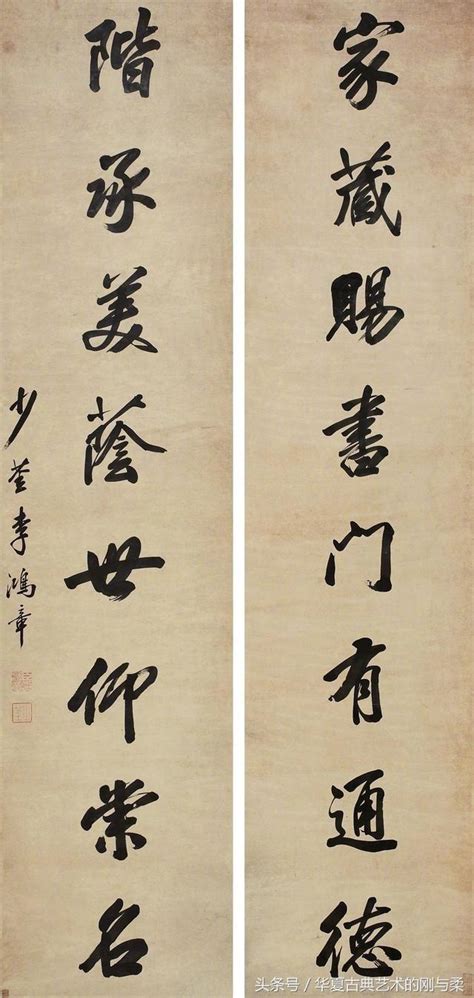 家藏賜書門有通德
階承美蔭世仰榮名
少荃李鴻章
头条号／华夏古典艺术的刚与柔